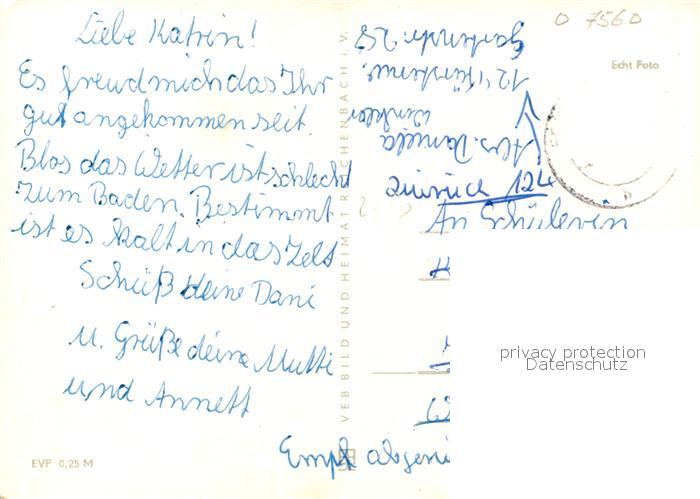 Liebe Katrin!
Es freud mich das Ihr
gut angekommen seit.
Blos das Wetter ist schlecht
zum Baden. Bestimmt
ist es kalt in das Zelt
Schüß deine Dani
u. Grüße deine Mutti
und Annett
EVP 0,25 M
VEB BILD UND HEIMAT REICHENBACH i. V.
0 7560
Echt Foto
Abs. Daniela
Winkler
124 Fürstenw.
Gartenstr. 28
zurück 124
An Schülerin
privacy protection
Datenschutz
Empf